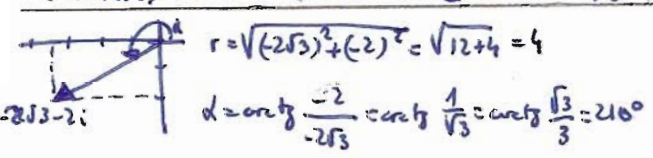 α r = √((-2√3)² + (-2)²) = √(12+4) = 4
-2√3-2i α = arctg -2/-2√3 = arctg 1/√3 = arctg √3/3 = 210°